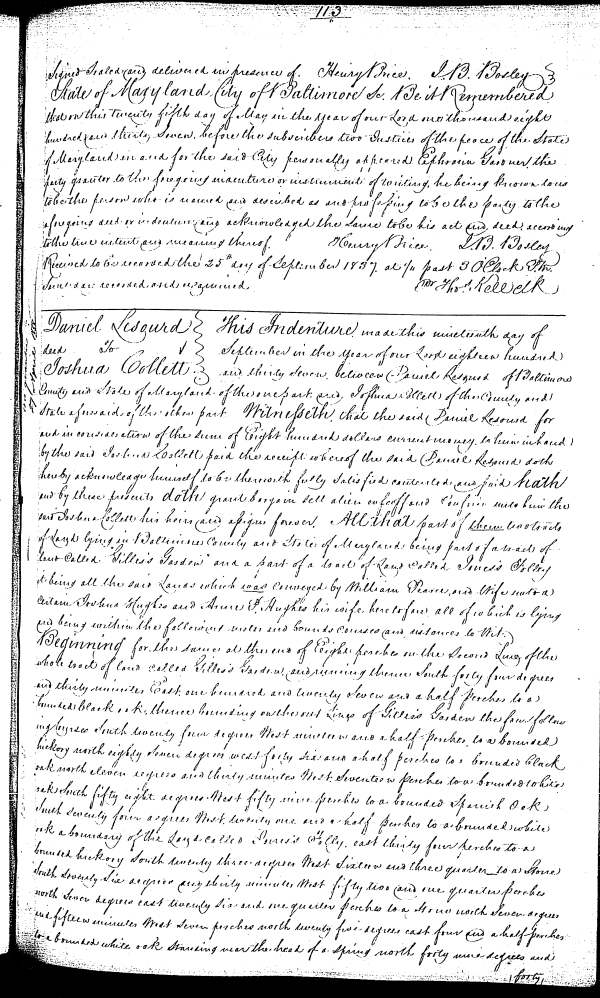 113
Signed Sealed and delivered in presence of. Henry Brice. J. B. Bosley
State of Maryland City of Baltimore Sc. Be it Remembered
that on this twenty fifth day of May in the year of our Lord one thousand eight
hundred and thirty Seven, before the subscribers two Justices of the peace of the State
of Maryland in and for the said City personally appeared Ephraim Gardner, the
party grantor to the foregoing indenture or instrument of writing, he being known to us
to be the person who is named and described as and professing to be the party to the
aforegoing deed or indenture, and acknowledged the same to be his act and deed, according
to the true intent and meaning thereof. Henry Brice. J. B. Bosley
Received to be recorded the 25th day of September 1837 at ½ past 3 OClock P.M.
Same day recorded and examined Thos. Kell Clk
Daniel Lesourd
deed To
Joshua Collett
This Indenture made this nineteenth day of
September in the Year of our Lord eighteen hundred
and thirty Seven, between Daniel Lesourd of Baltimore
County and State of Maryland of the one part, and Joshua Collett of the County and
State aforesaid of the other part Witnesseth, that the said Daniel Lesourd for
and in consideration of the sum of Eight hundred dollars current money to him in hand
by the said Joshua Collett paid the receipt whereof the said Daniel Lesourd doth
hereby acknowledge himself to be therewith fully Satisfied contented and paid hath
and by these presents doth grant bargain sell alien enfeoff and Confirm unto him the
said Joshua Collett his heirs and assigns forever. All that part of them two tracts
of Land lying in Baltimore County and State of Maryland being part of a track of
land Called "Gillis's Garden" and a part of a tract of Land called Jones's Folley
it being all the said Lands which was conveyed by William Pearce and Wife unto a
Certain Joshua Hughes and Anne F. Hughes his wife, heretofore all of which is lying
and being within the following metes and bounds Courses and distances to Wit.
Beginning for the same at the end of Eight perches on the Second Line of the
whole tract of land called Gillis's Garden, and running thence South forty four degrees
and thirty minutes East one hundred and twenty Seven and a half Perches to a
bounded black oak, thence bounding on the out lines of Gillis's Garden the four follow
ing courses South twenty four degrees West nineteen and a half perches, to a bounded
hickory north eighty Seven degrees west forty six and a half perches to a bounded black
oak north eleven degrees and thirty minutes West Seventeen perches to a bounded white
oak South fifty eight degrees West fifty nine perches to a bounded Spanish Oak,
South seventy four degrees West twenty one and a half perches to a bounded white
oak a boundary of the Land called Jones's Folly, east thirty four perches to a
bounded hickory South twenty three degrees West Sixteen and three quarter to a Stone
South Seventy Six degrees and thirty minutes West fifty two and one quarter perches
north Seven degrees east twenty six and one quarter perches to a Stone north Seven degrees
and fifteen minutes West Seven perches north twenty five degrees east four and a half perches
to a bounded white oak standing near the head of a Spring north forty nine degrees and
forty